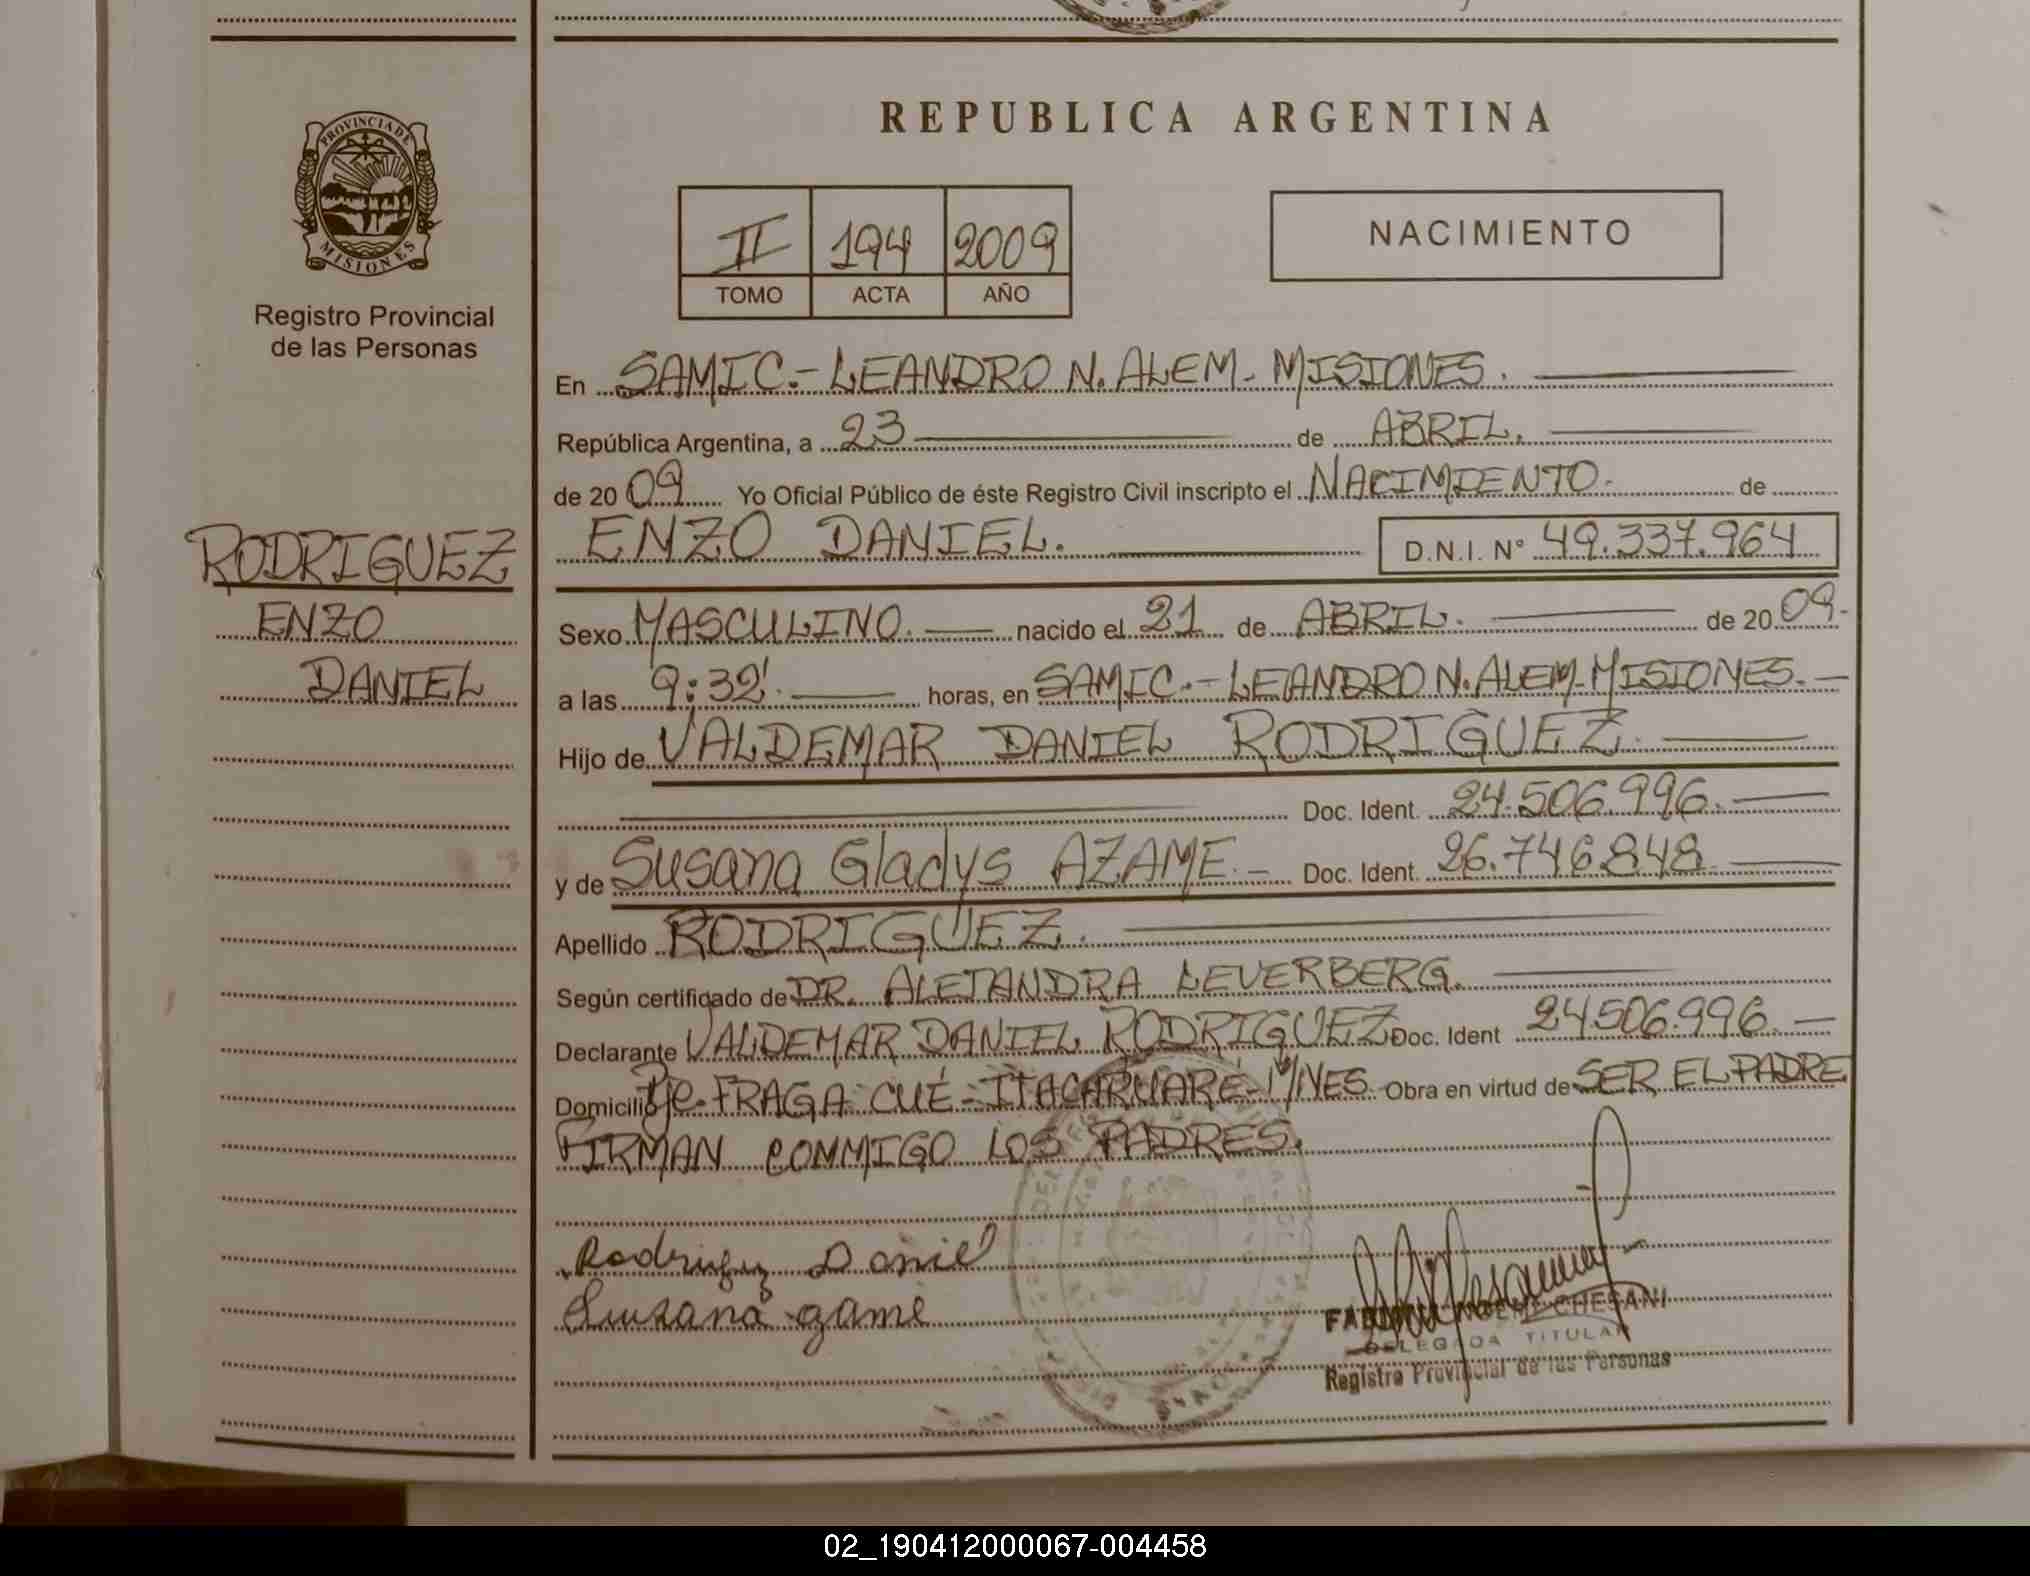 REPUBLICA ARGENTINA
PROVINCIA DE
MISIONES
Registro Provincial
de las Personas
II 194 2009
TOMO ACTA AÑO
NACIMIENTO
En SAMIC.- LEANDRO N. ALEM - MISIONES.
República Argentina, a 23 de ABRIL.
de 20 09 Yo Oficial Público de éste Registro Civil inscripto el NACIMIENTO. de
ENZO DANIEL. D.N.I. N° 49.337.964
RODRIGUEZ
ENZO
DANIEL
Sexo MASCULINO. nacido el 21 de ABRIL. de 20 09.
a las 9:32' horas, en SAMIC.- LEANDRO N. ALEM - MISIONES.
Hijo de VALDEMAR DANIEL RODRIGUEZ.
Doc. Ident. 24.506.996.
y de Susana Gladys AZAME. Doc. Ident. 26.746.848
Apellido RODRIGUEZ.
Según certificado de DR. ALEJANDRA LEVERBERG.
Declarante VALDEMAR DANIEL RODRIGUEZ Doc. Ident 24.506.996.
Domicilio Pje. FRAGA CUÉ - ITACARUARÉ - M/NES. Obra en virtud de SER EL PADRE
FIRMAN CONMIGO LOS PADRES.
Rodriguez Daniel
Susana
CHESANI
DELEGADA TITULAR
Registro Provincial de las Personas
02_190412000067-004458